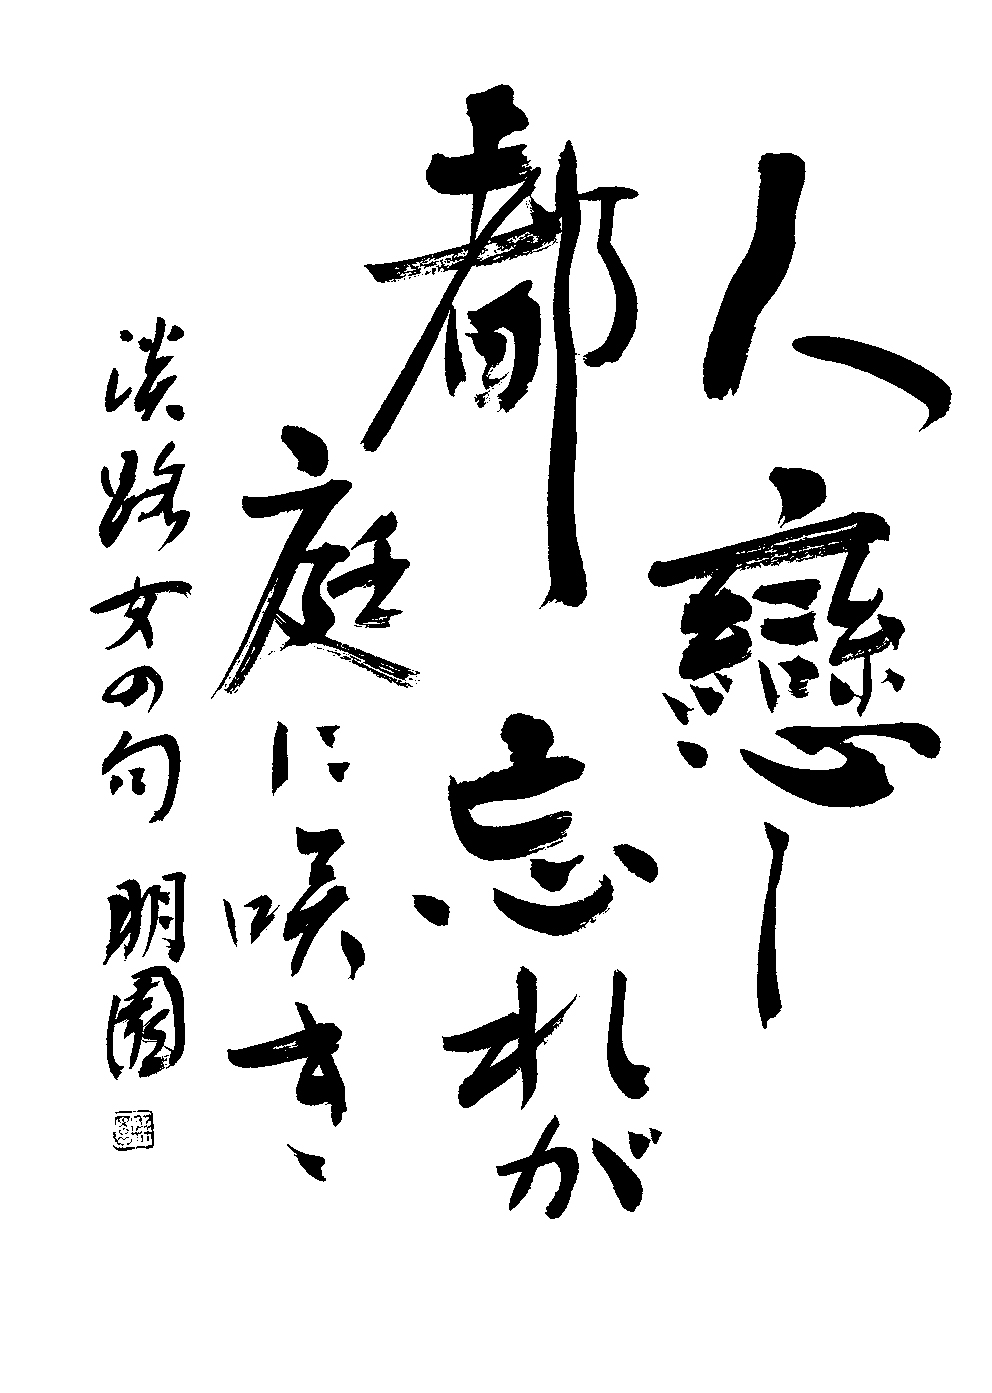 人戀し
都忘れが
庭に咲き
淡路女の句 明園